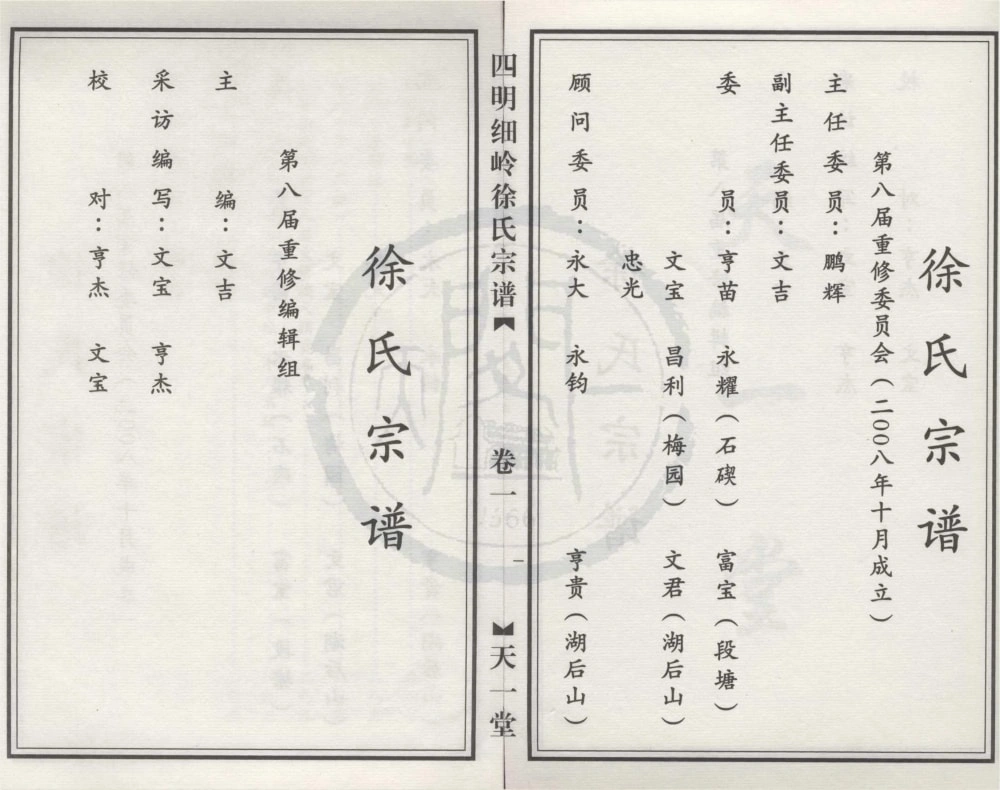 徐氏宗谱
第八届重修委员会（二00八年十月成立）
主任委员：鹏辉
副主任委员：文吉
委员：亨苗 永耀（石碶） 富宝（段塘）
文宝 昌利（梅园） 文君（湖后山）
忠光
顾问委员：永大 永钧 亨贵（湖后山）
四明细岭徐氏宗谱 卷一 一 天一堂
徐氏宗谱
第八届重修编辑组
主编：文吉
采访编写：文宝 亨杰
校对：亨杰 文宝